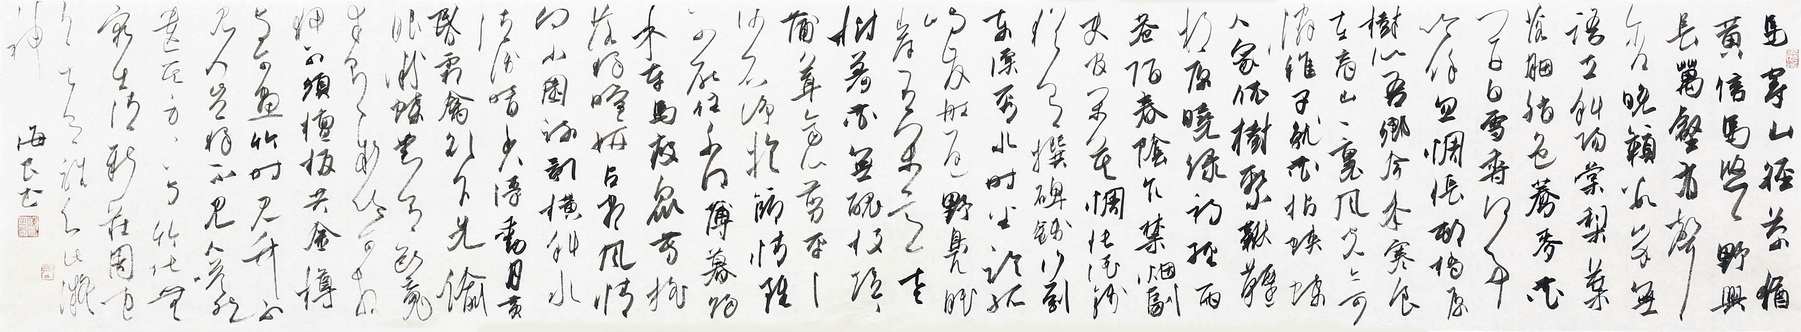 馬穿山徑菊
黃信馬悠悠野興
長萬壑有聲
含晚籟數峰無
語立斜陽棠梨葉
落胭脂色蕎麥花
開白雪香何事
吟餘忽惆悵村橋原
樹似吾鄉今年寒食
在商山山裏風光亦可
憐稚子就花拈蛺蝶
人家依樹繫鞦韆
郊原曉綠初經雨
巷陌春陰乍禁煙副
使官閑莫惆悵酒錢
猶有撰碑錢行到
東溪看水時坐臨孤
嶼發船遲野鳧眠
岸有閑意老
樹著花無醜枝短短
蒲茸齊似剪平平
沙石淨於篩情雖
不厭住不得薄暮歸
來車馬疲眾芳搖
落獨暄妍占盡風情
向小園疏影橫斜水
清淺暗香浮動月黃
昏霜禽欲下先偷
眼粉蝶如知合斷魂
幸有微吟可相
狎不須檀板共金樽
與可畫竹時見竹不
見人豈獨不見人嗒然
遺其身其身與竹化無
窮出清新莊周世
無有誰知此凝
神